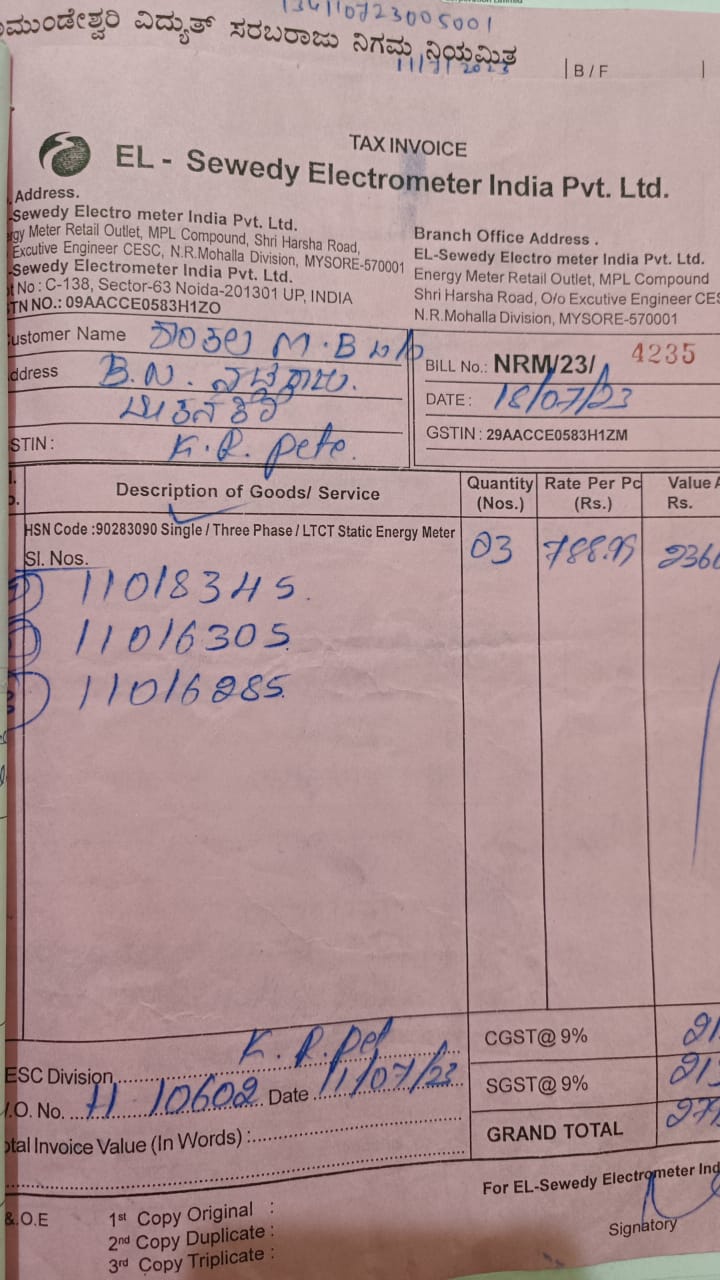 134110723005001
ಮುಂಡೇಶ್ವರಿ ವಿದ್ಯುತ್ ಸರಬರಾಜು ನಿಗಮ ನಿಯಮಿತ
11/7/2023
B / F
TAX INVOICE
EL - Sewedy Electrometer India Pvt. Ltd.
Address.
-Sewedy Electro meter India Pvt. Ltd.
rgy Meter Retail Outlet, MPL Compound, Shri Harsha Road,
Excutive Engineer CESC, N.R.Mohalla Division, MYSORE-570001
-Sewedy Electrometer India Pvt. Ltd.
t No : C-138, Sector-63 Noida-201301 UP, INDIA
TN NO.: 09AACCE0583H1ZO
Branch Office Address .
EL-Sewedy Electro meter India Pvt. Ltd.
Energy Meter Retail Outlet, MPL Compound
Shri Harsha Road, O/o Excutive Engineer CES
N.R.Mohalla Division, MYSORE-570001
ustomer Name M.B
ddress B.N.
STIN : K.R. pete.
BILL No.: NRM/23/ 4235
DATE : 18/07/23
GSTIN : 29AACCE0583H1ZM
Description of Goods/ Service
Quantity (Nos.)
Rate Per Pc (Rs.)
Value A Rs.
HSN Code :90283090 Single / Three Phase / LTCT Static Energy Meter
03 788.99 2366
Sl. Nos.
11018345.
11016305.
11016285.
CGST@ 9%
SGST@ 9%
GRAND TOTAL
ESC Division K. R. Pet
.O. No. H 10602 Date 11/07/23
otal Invoice Value (In Words) :
For EL-Sewedy Electrometer Ind
Signatory
&.O.E
1st Copy Original :
2nd Copy Duplicate :
3rd Copy Triplicate :